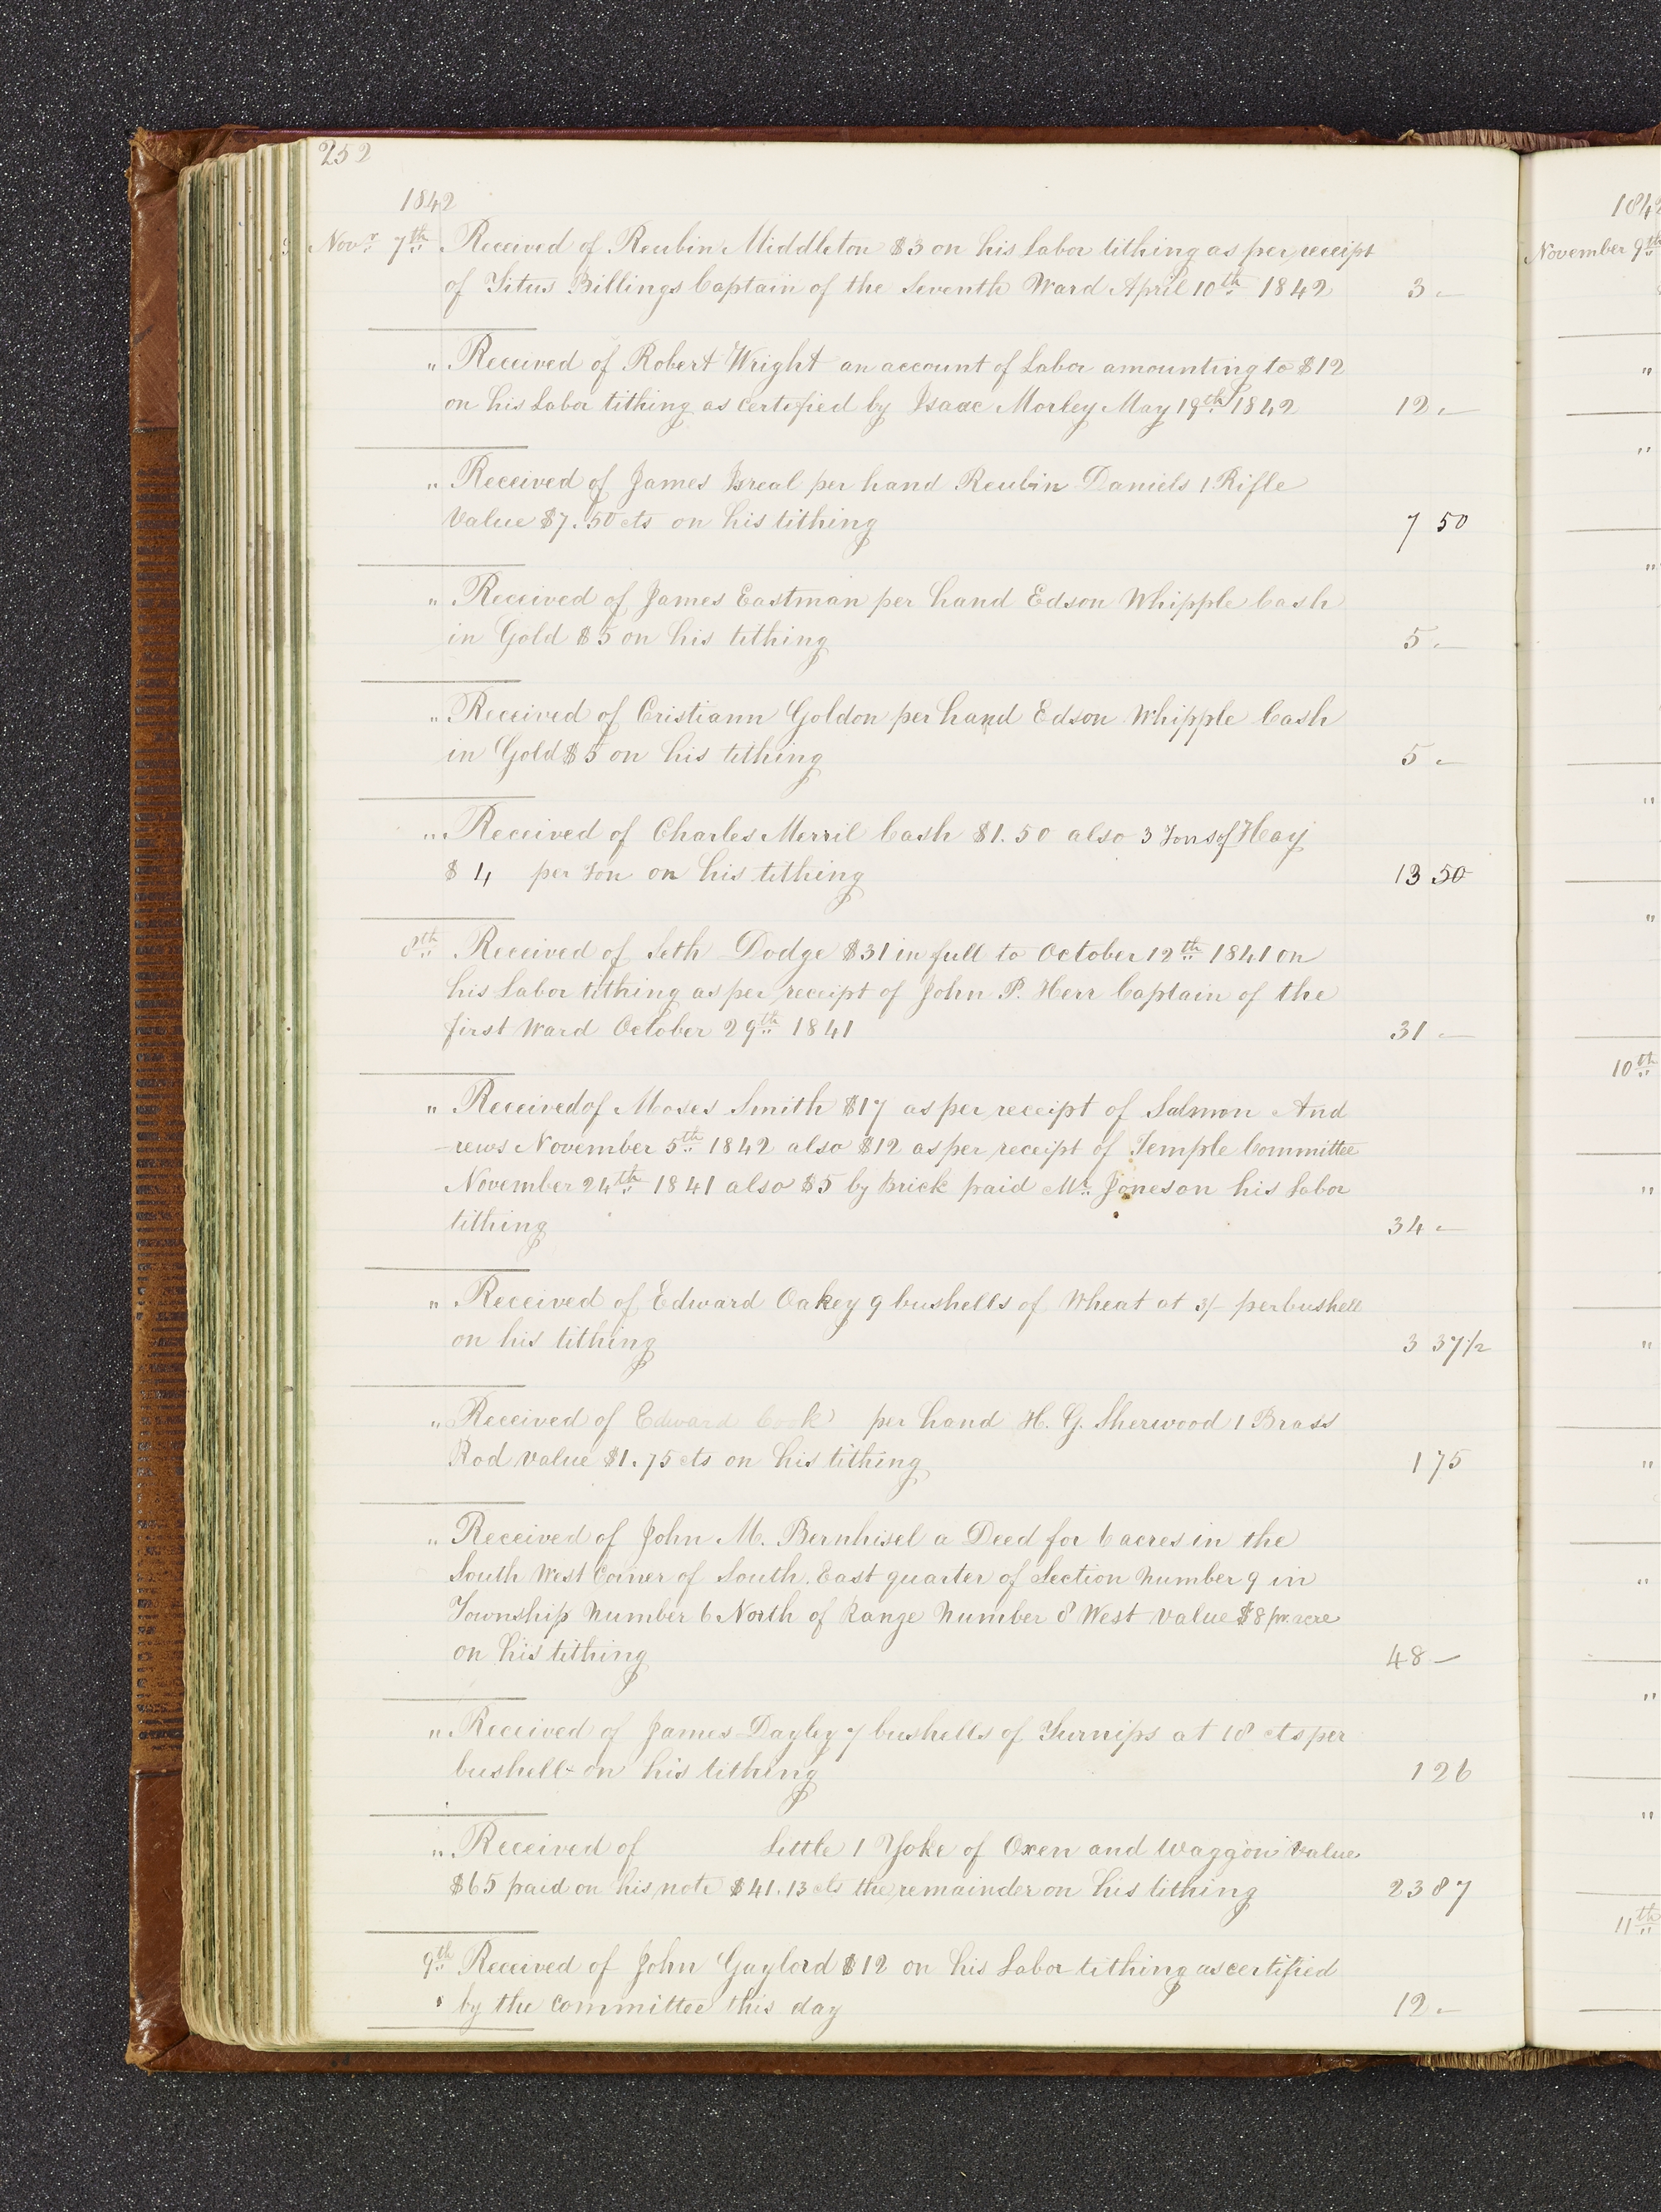 252
1842
Novr. 7th. Received of Reubin Middleton $3 on his Labor tithing as per receipt
of Titus Billings Captain of the Seventh Ward April 10th. 1842 3.—
" Received of Robert Wright an account of Labor amounting to $12
on his Labor tithing as certified by Isaac Morley May 19th. 1842 12.—
" Received of James Isreal per hand Reubin Daniels 1 Rifle
Value $7.50 cts on his tithing 7 50
" Received of James Eastman per hand Edson Whipple Cash
in Gold $5 on his tithing 5.—
" Received of Cristiann Goldon per hand Edson Whipple Cash
in Gold $5 on his tithing 5.—
" Received of Charles Merril Cash $1.50 also 3 Tons of Hay
$4 per Ton on his tithing 13 50
8th. Received of Seth Dodge $31 in full to October 12th. 1841 on
his Labor tithing as per receipt of John P. Herr Captain of the
first Ward October 29th. 1841 31 —
" Received of Moses Smith $17 as per receipt of Salmon And
-rews November 5th. 1842 also $12 as per receipt of Temple Committee
November 24th. 1841 also $5 by Brick paid Mr. Jones on his Labor
tithing 34 —
" Received of Edward Oakey 9 bushells of Wheat at 3/- per bushell
on his tithing 3 37 1/2
" Received of Edward Cook per hand H. G. Sherwood 1 Brass
Rod value $1.75 cts on his tithing 1 75
" Received of John M. Bernhisel a Deed for 6 acres in the
South West Corner of South East quarter of Section Number 9 in
Township Number 6 North of Range Number 8 West value $8 pr. acre
on his tithing 48 —
" Received of James Dayley 7 bushells of Turnips at 18 cts per
bushell on his tithing 1 26
" Received of Little 1 Yoke of Oxen and Waggon value
$65 paid on his note $41.13 cts the remainder on his tithing 23 87
9th. Received of John Gaylord $12 on his Labor tithing as certified
by the Committee this day 12.—
1842
November 9th.
"
"
"
"
"
10th.
"
"
"
"
"
"
11th.